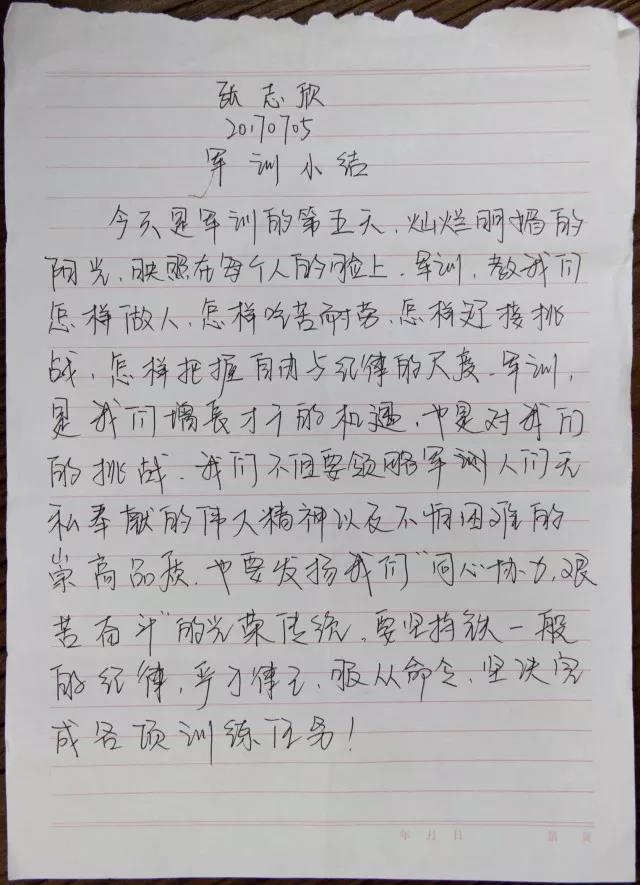 张志欣
20170705
军训小结
今天是军训的第五天,灿烂明媚的
阳光,映照在每个人的脸上.军训,教我们
怎样做人,怎样吃苦耐劳,怎样迎接挑
战,怎样把握自由与纪律的尺度.军训,
是我们增长才干的机遇,也是对我们
的挑战.我们不但要领略军训人们无
私奉献的伟大精神以及不怕困难的
崇高品质,也要发扬我们“同心协力,艰
苦奋斗”的光荣传统,要坚持铁一般
的纪律,严于律己,服从命令,坚决完
成各项训练任务!
年 月 日 第 页